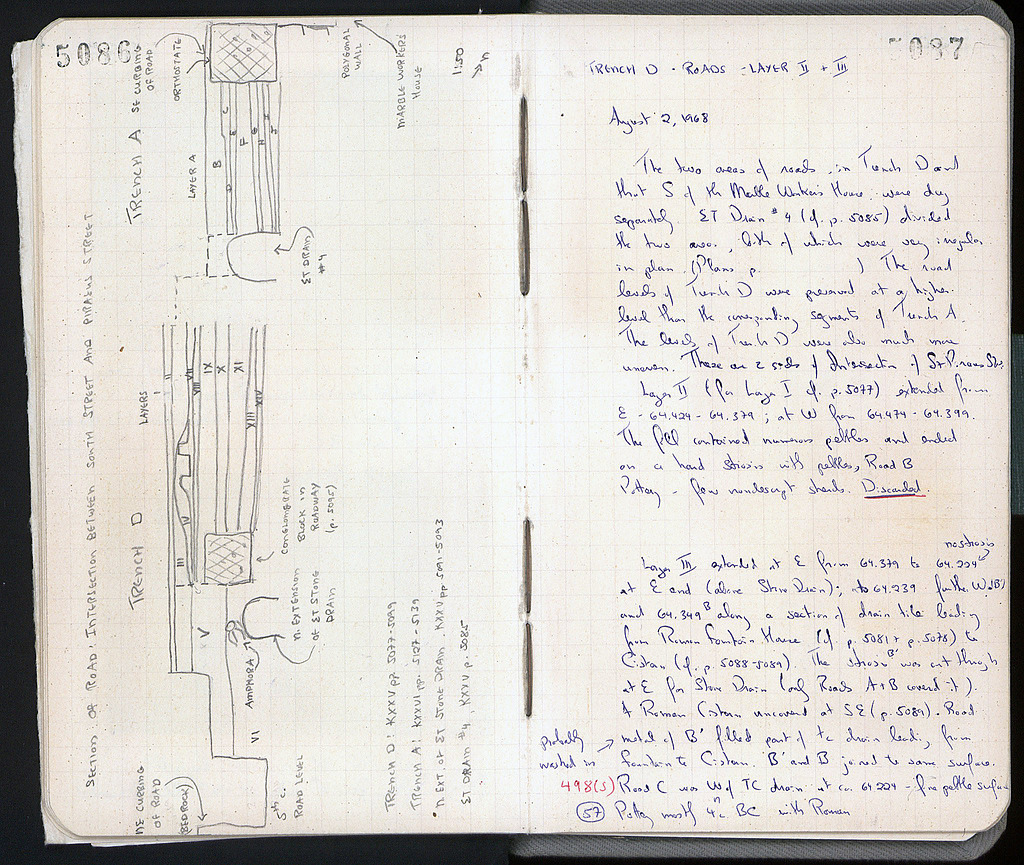 5086
SECTION OF ROAD: INTERSECTION BETWEEN SOUTH STREET AND PIRAEUS STREET
TRENCH D
TRENCH A
SE CURBING
OF ROAD
ORTHOSTATE
LAYER A
B
C
D
E
F
G
H
I
J
POLYGONAL
WALL
MARBLE WORKERS
HOUSE
1:50
N
ST DRAIN
#4
LAYERS
I
II
III
IV
V
VI
VII
VIII
IX
X
XI
XIII
XIV
CONGLOMERATE
BLOCK IN
ROADWAY
(p. 5095)
N. EXTENSION
OF ST STONE
DRAIN
AMPHORA
NE CURBING
OF ROAD
BEDROCK
5th c.
ROAD LEVEL
TRENCH D: KXXV pp. 5077-5099
TRENCH A: KXXVI pp. 5127-5139
N. EXT. OF ST STONE DRAIN KXXV pp. 5091-5093
ST DRAIN #4 KXXV p. 5085
5087
TRENCH D - ROADS - LAYER II + III
August 2, 1968
The two areas of roads, in Trench D and
that S of the Marble Worker's House were dug
separately. ST Drain #4 (cf. p. 5085) divided
the two areas, both of which were very irregular
in plan. (Plans p. ) The road
levels of Trench D were preserved at a higher
level than the corresponding segments of Trench A.
The levels of Trench D were also much more
uneven. These are 2 sides of Intersection of S + Piraeus Sts.
Layer II (for Layer I cf. p. 5077) extended from
E - 64.429 - 64.379; at W from 64.474 - 64.399.
The fill contained numerous pebbles and ended
on a hard strosis with pebbles, Road B
Pottery - few nondescript sherds. Discarded.
no strosis
Layer III extended at E from 64.379 to 64.204
at E end (above Stone Drain); to 64.239 further W (B')
and 64.349 B along a section of drain tile leading
from Roman Fountain House (cf. p. 5081 + p. 5078) to
Cistern (cf. p. 5088-5089). The strosis B' was cut through
at E for Stone Drain (only Roads A + B covered it).
A Roman Cistern uncovered at SE (p. 5089). Road
metal of B' filled part of tc drain leading from
probably
washed in
fountain to Cistern. B' and B joined to same surface.
498(S) Road C was W of TC drain at ca. 64.224 - fine pebble surface
57 Pottery mostly 4th c. BC with Roman